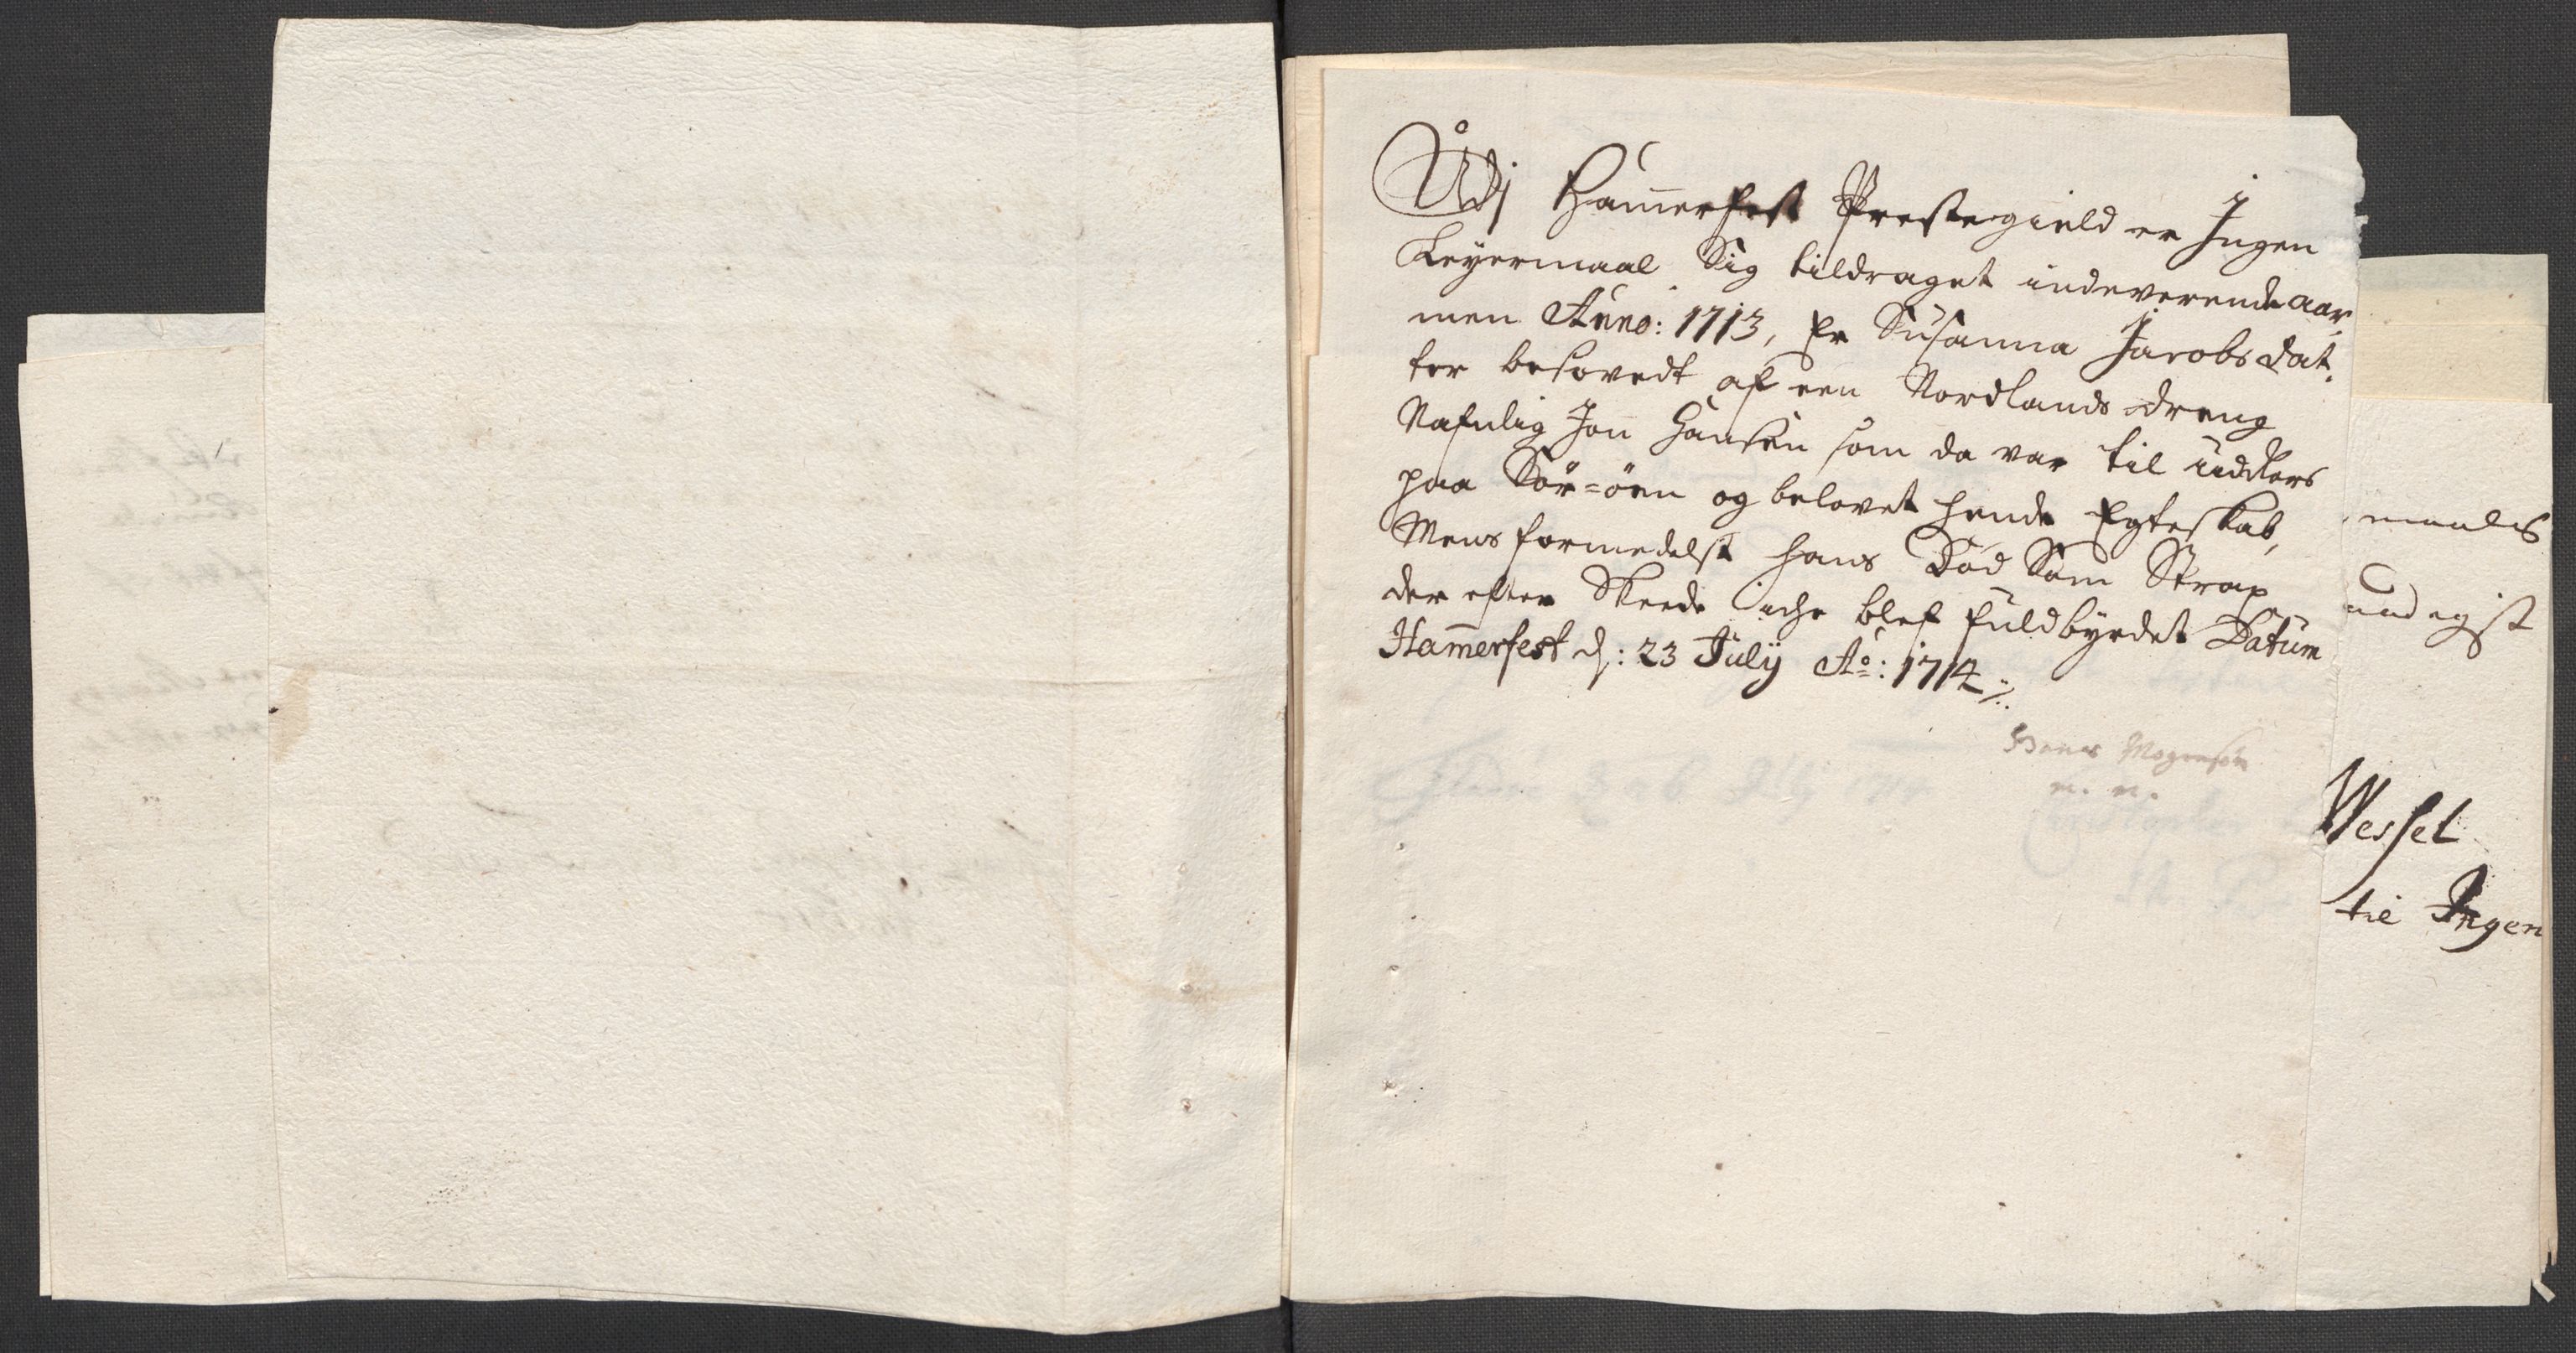 Udj Hammerfest Prestegield er Ingen
Leyermaal Sig tildraget indeverende aar,
men Anno: 1713, Er Susanna Jacobs dat.
ter besovedt af een Nordlands dreng
Nafnlig Jon Hansen som da var til uddkers
paa Sör=öen og belovet hende Egteskab,
Mens formedelst hans Död Som Strax
der efter Skeede iche blef fuldbyrdet Datum
Hammerfest d: 23 Julij Ao: 1714
Mogensön
m. n.
maalis
Wessel
til Ingen